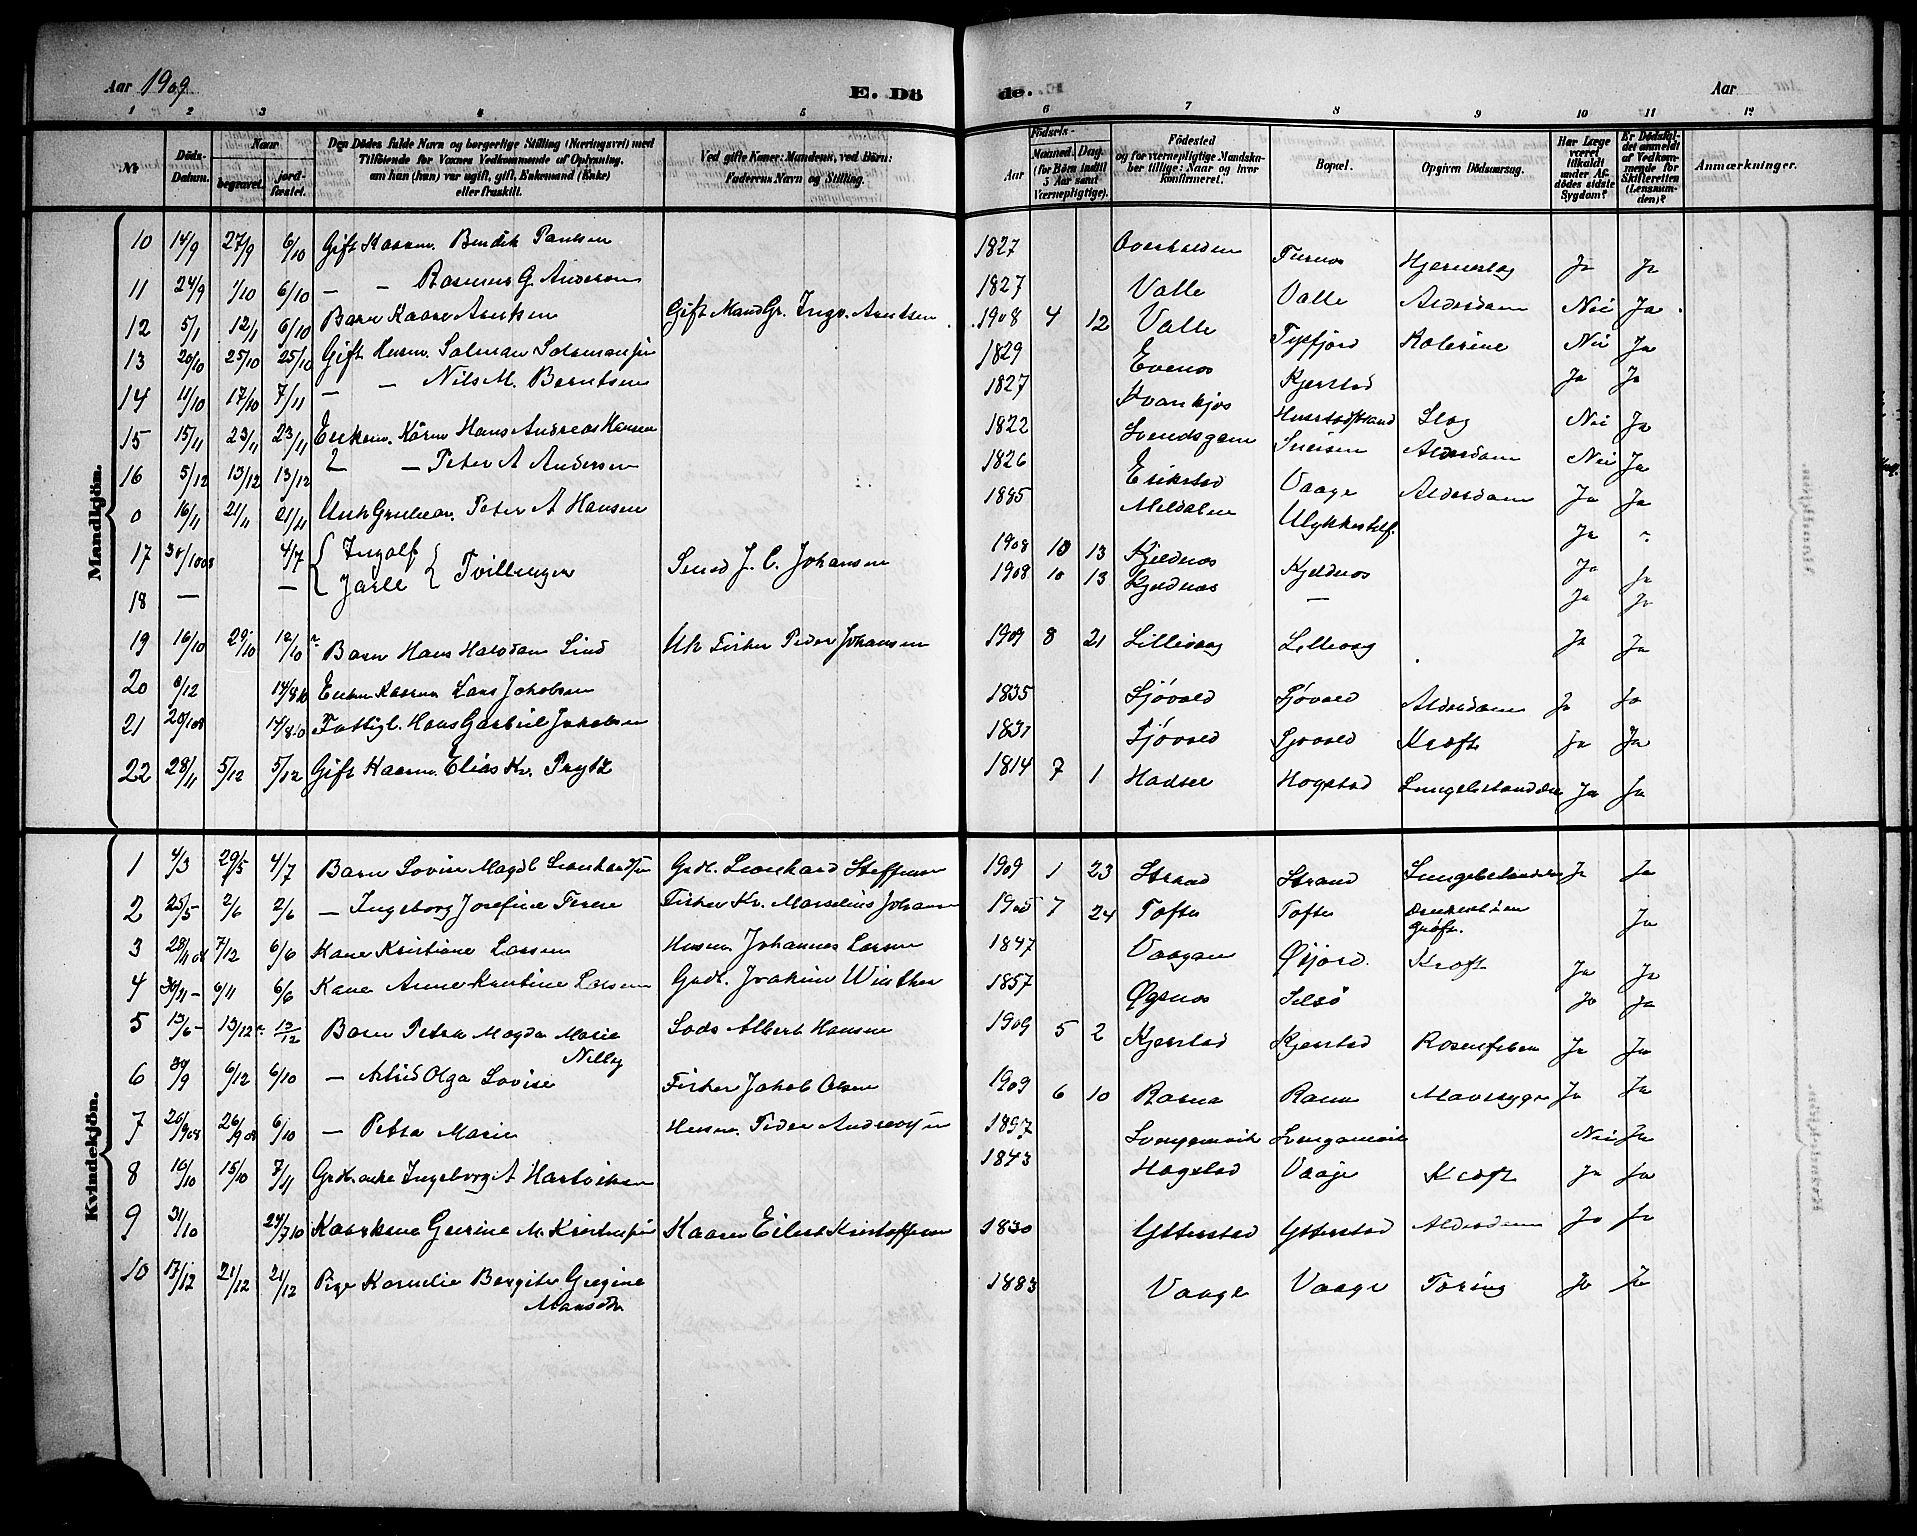 Aar 1909
E. Dö
de.
Aar
1 2 3 4 5 6 7 8 9 10 11 12
Nr.
Döds-Datum.
Naar
begravet.
jordfæstet.
Den Dödes fulde Navn og borgerlige Stilling (Næringsvei) med Tilföiende for Voxnes Vedkommende af Oplysning, om han (hun) var ugift, gift, Enkemand (Enke) eller fraskilt.
Ved gifte Koner: Mandens, ved Börn: Faderens Navn og Stilling.
Födsels-
Aar
Maaned. Dag.
(for Börn indtil 5 Aar samt Værnepligtige).
Födested og for værnepligtige Mandskaber tillige: Naar og hvor konfirmeret.
Bopæl.
Opgiven Dödsaarsag.
Har Læge været tilkaldt under Afdödes sidste Sygdom?
Er Dödsfaldet anmeldt af Vedkommende for Skifteretten (Lensmanden)?
Anmærkninger.
Mandkjön.
10 14/9 27/9 6/10 Gift Kaarm. Bendik Paulsen 1827 Overhalden Turnos Hjerneslag Ja Ja
11 24/9 1/10 6/10 — — Rasmus G. Andersen 1827 Valle Valle Alderdom Nei Ja
12 5/1 12/1 6/10 Barn Kaare Arntsen Gift Mand Gr. Ingv. Arntsen 1908 4 12 Valle
13 20/10 25/10 25/10 Gift Husm. Salmon Salomonsen 1829 Evenes Tysfjord Kolerine Nei Ja
14 11/10 17/10 7/11 — — Nils M. Berntsen 1827 Kjerstad Ja Ja
15 15/11 23/11 23/11 Enkem. Kårm Hans Andreas Hansen 1822 Slag Nei Ja
16 5/12 13/12 13/12 — Peter A Andersen 1826 Erikstad Alderdom Nei Ja
0 16/11 21/11 21/11 Peter A Hansen 1885 Meldalen Vaage Ulykkestilf. Ja
17 30/10 08 4/7 { Ingolf } Tvillinger Smed J. C. Johansen 1908 10 13 Kjeldnos Kjeldnos Ja Ja
18 — — { Jarle 1908 10 13 Kjeldnos — Ja Ja
19 16/10 29/10 12/10 Barn Hans Halvdan Lind Uk Fisker Peder Johansen 1909 8 21 Lillevaag Lillevag Ja Ja
20 6/12 14/8 10 Enkem Kaarm Lars Jakobsen 1835 Sjövold Sjövold Alderdom Ja Ja
21 17/8 10 Fattigl. Hans Gabriel Jakobsen 1831 Sjövold Sjövold Kræft Ja Ja
22 28/11 5/12 5/12 Gift Kaarm. Elias Kr. Prytz 1814 7 1 Hadsel Hogstad Ja Ja
Kvindekjön.
1 4/3 29/5 4/7 Barn Lovise Magd. Leonhardsen Grdb. Leonhard Steffensen 1909 1 23 Strand Strand Lungebetændelse Ja Ja
2 25/5 2/6 2/6 — Ingeborg Josefine Terese Fisker Kr. Marselius Johansen 1905 7 24 Tofte Tofte Ja
3 28/11 08 7/12 6/6 Kone Kristiane Larsen Husm. Johannes Larsen 1847 Vaagan Øijord Kræft Ja Ja
4 30/11 — 6/11 6/6 Kone Anne Kristine Larsen Grdb. Joakim Winther 1857 Øgsnos Selsø Ja Ja
5 13/6 — 13/12 13/12 Barn Petra Magda Marie Nelly Lods Albert Hansen 1909 5 2 Kjerstad Kjerstad Rosenfeber Ja Ja
6 30/9 6/12 6/10 — Astrid Olga Lovise Fisker Jakob Olsen 1909 6 10 Ramn Ramn Mavesyge Ja Ja
7 20/9 08 26/9 08 6/10 — Petra Marie Husm. Peder Andreassen 1897 Nei Ja
8 10/10 15/10 7/11 Ingeborg A Hartviksen 1843 Hogstad Vaage Kræft Ja Ja
9 31/10 24/7 10 Kaarkone Gurine M. Kristensen Kaarm Eilert Kristoffersen 1830 Ytterstad Ytterstad Alderdom Ja Ja
10 17/12 21/12 21/12 Pige Kornelie Bergite Gurine 1883 Vaage Vaage Tæring Ja Ja